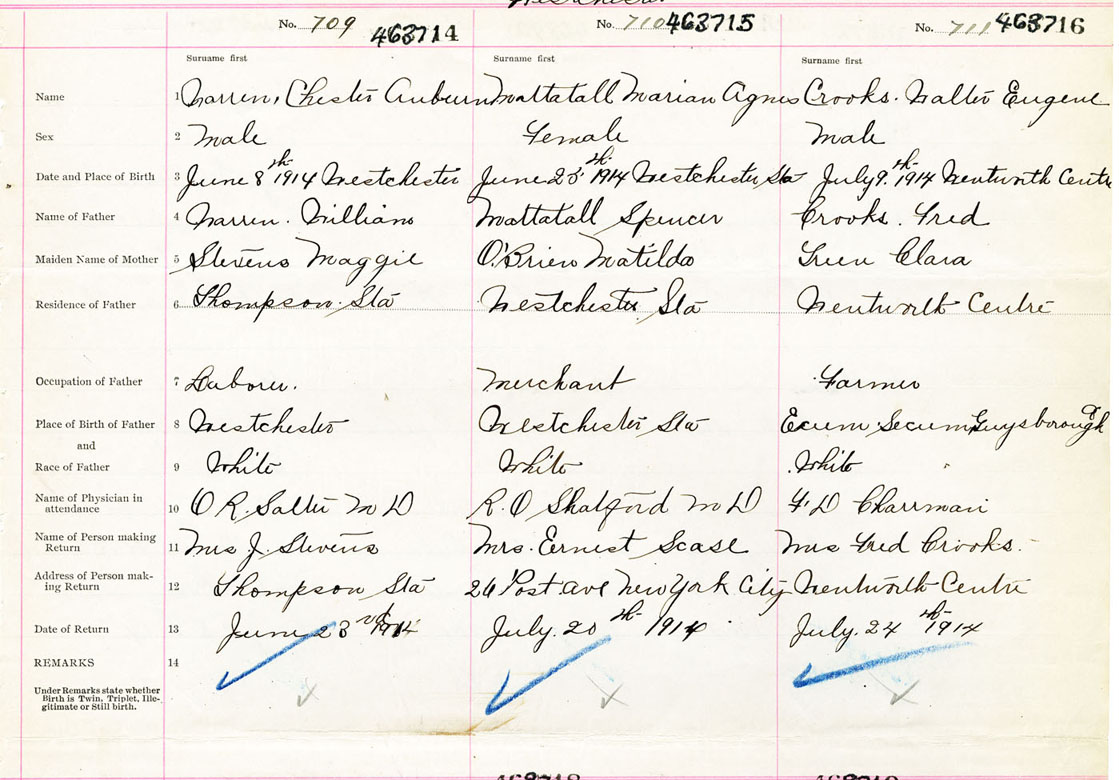 No. 709 463714 No. 710 463715 No. 711 463716
Surname first Surname first Surname first
Name 1 Warren, Chester Auburn Mattatall Marian Agnes Crooks. Walter Eugene
Sex 2 Male Female Male
Date and Place of Birth 3 June 8th 1914 Westchester June 25th 1914 Westchester Sta July 9th 1914 Wentworth Centre
Name of Father 4 Warren. William Mattatall Spencer Crooks. Fred
Maiden Name of Mother 5 Stevens Maggie O'Brien Matilda Green Clara
Residence of Father 6 Thompson Sta Westchester Sta Wentworth Centre
Occupation of Father 7 Laborer. Merchant Farmer
Place of Birth of Father 8 Westchester Westchester Sta Ecum Secum Guysborough
and
Race of Father 9 White White White
Name of Physician in
attendance 10 O R. Salter M D R. O Shatford M D F. D Charman
Name of Person making
Return 11 Mrs J. Stevens Mrs. Ernest Scase Mrs Fred Crooks.
Address of Person mak-
ing Return 12 Thompson Sta 26 Post Ave New York City Wentworth Centre
Date of Return 13 June 23rd 1914 July. 20th 1914 July. 24th 1914
REMARKS 14
Under Remarks state whether
Birth is Twin, Triplet, Ille-
gitimate or Still birth.